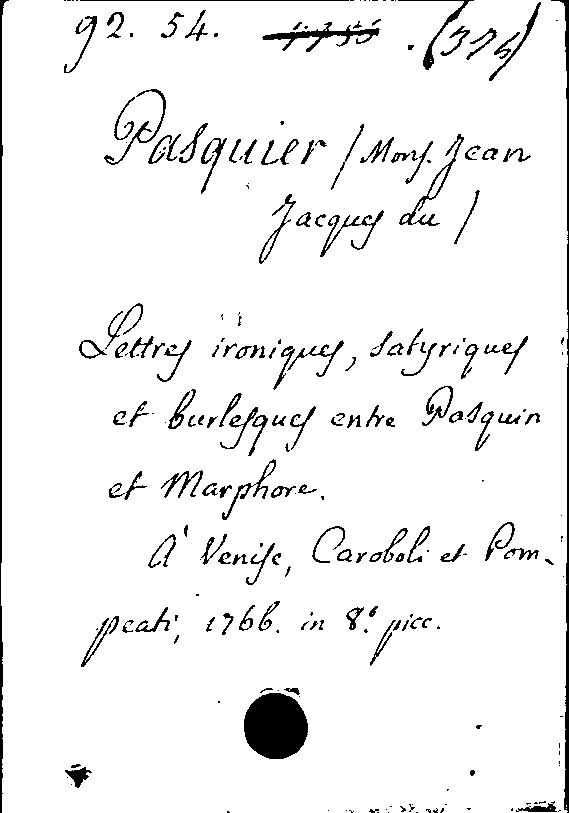 92. 54. . (375)
Pasquier / Mons. Jean
Jacques du /
Lettres ironiques, satyriques
et burlesques entre Pasquin
et Marphore.
A' Venise, Caroboli et Pom-
peati, 1766. in 8.° picc.